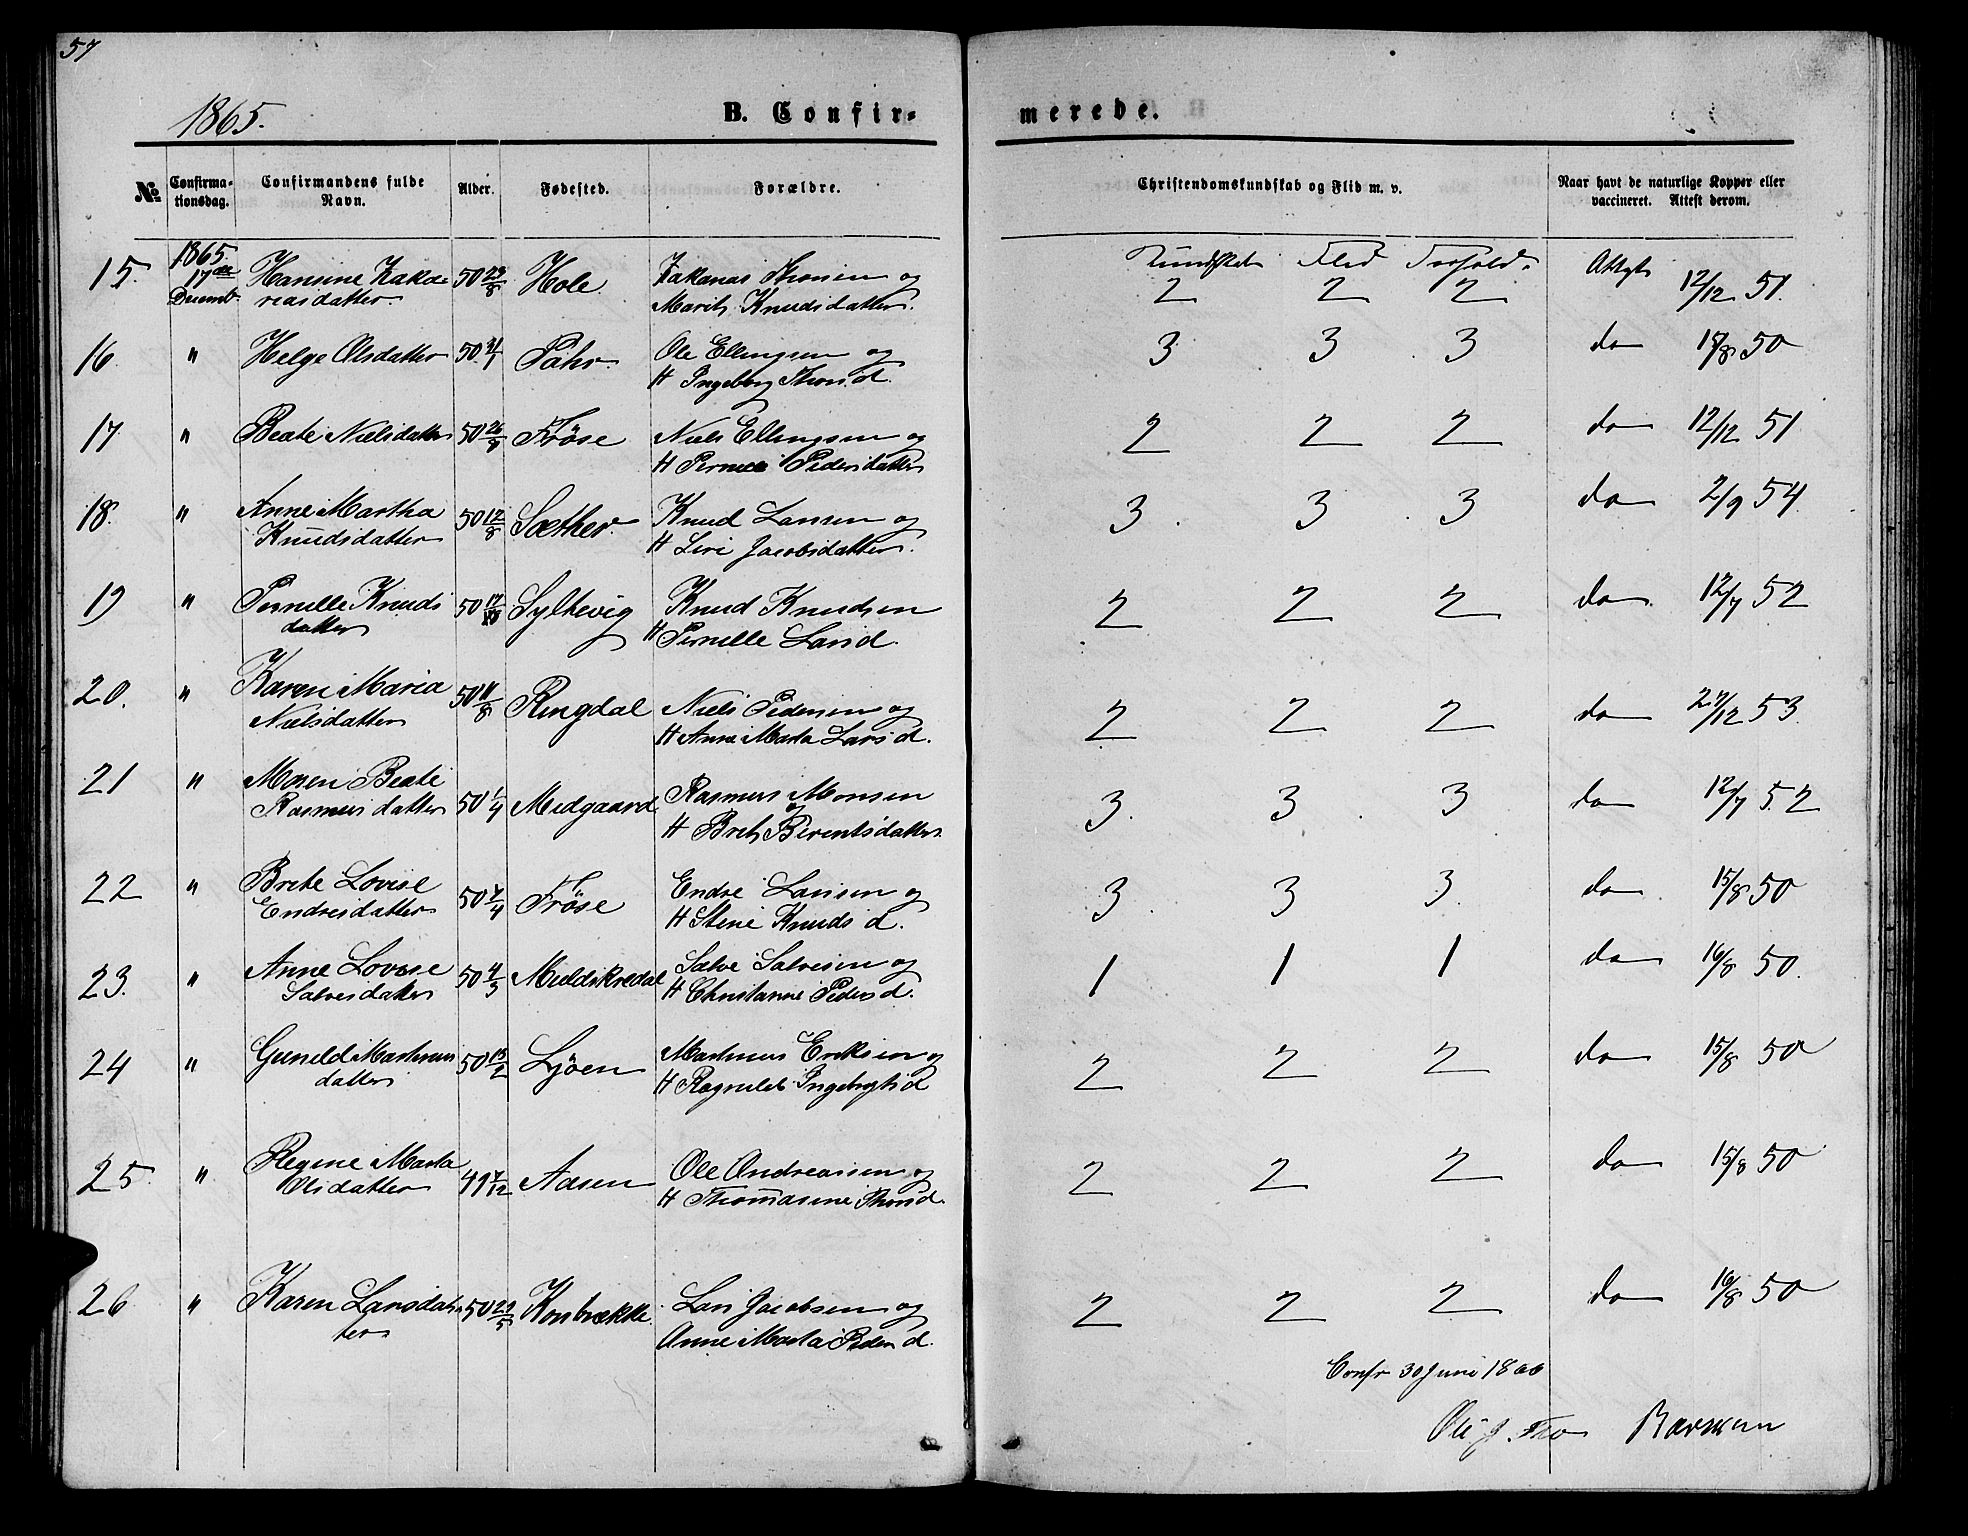 57
1865.
B. Confir-
merede.
No
Confirma-
tionsdag.
Confirmandens fulde
Navn.
Alder.
Fødested.
Forældre.
Christendomskundskab og Flid m. v.
Naar havt de naturlige Kopper eller
vaccineret. Attest derom.
Kundskab Flid Forhold.
15. 1865. 17de Decemb. Hansine Zaka- 50 23/8 Hole. Zakarias Thorsen og 2 2 2 Attest 12/12 51.
riasdatter Marit Knudsdatter.
16. " Helge Olsdatter 50 Ole Ellingsen og 3 3 3 do 15/8 50
H Ingeborg Thorsd.
17. " Beate Nielsdatter 50 Frøse Niels Ellingsen og 2 2 2 do 12/12 51
H Pedersdatter
18. " Anne Martha 50 12/8 Sæther. Knud Larsen og 3 3 3 do 2/9 54.
Knudsdatter H Siri Jacobsdatter.
19 " Pernille Knuds 50 Syltevig Knud Knudsen 2 2 2 do 12/7 52
datter H Pernille Larsd.
20. " Karen Maria 50 11/8 Ringdal Niels Pedersen og 2 2 2 do 27/12 53.
Nielsdatter H Anne Marta Larsd.
21 " Maren Beate 50 1/4 Midgaard Rasmus Monsen 3. 3 3 do 12/7 52
Rasmusdatter og
H Brit Berentsdatter.
22 " Brite Lovise 50 7/4 Frøse Endre Larsen og 3. 3 3. do 15/8 50
Endresdatter H Stine Knudsd.
23. " Anne Lovise 50 4/5 Muldskredal Salve Salvesen og 1 1 1 do 16/8 50.
Salvesdatter H Christianne Pedersd.
24 " Gunild Martinus 50 15/2 Ljøen Martinus Eriksen og 2 2 2 do 15/8 50
datter H Ragnild Ingebrigtsd
25. " Regine Marta 49 7/12 Aasen Ole Andreassen og 2 2 2 do 15/8 50
Olsdatter H Thomasine Thorsd.
26 " Karen Larsdat- 50 22/5 Konbrække. Lars Jacobsen og 2 2 2 do 16/8 50
ter Anne Marta Pedersd.
Confr 30 Juni 1866